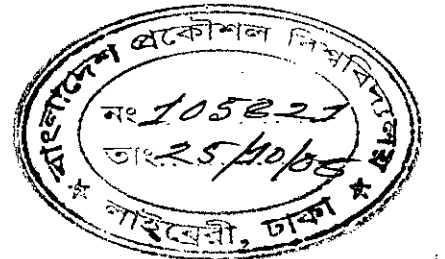 বাংলাদেশ প্রকৌশল বিশ্ববিদ্যালয়
নং 105821
তাং 25/10/06
লাইব্রেরী, ঢাকা